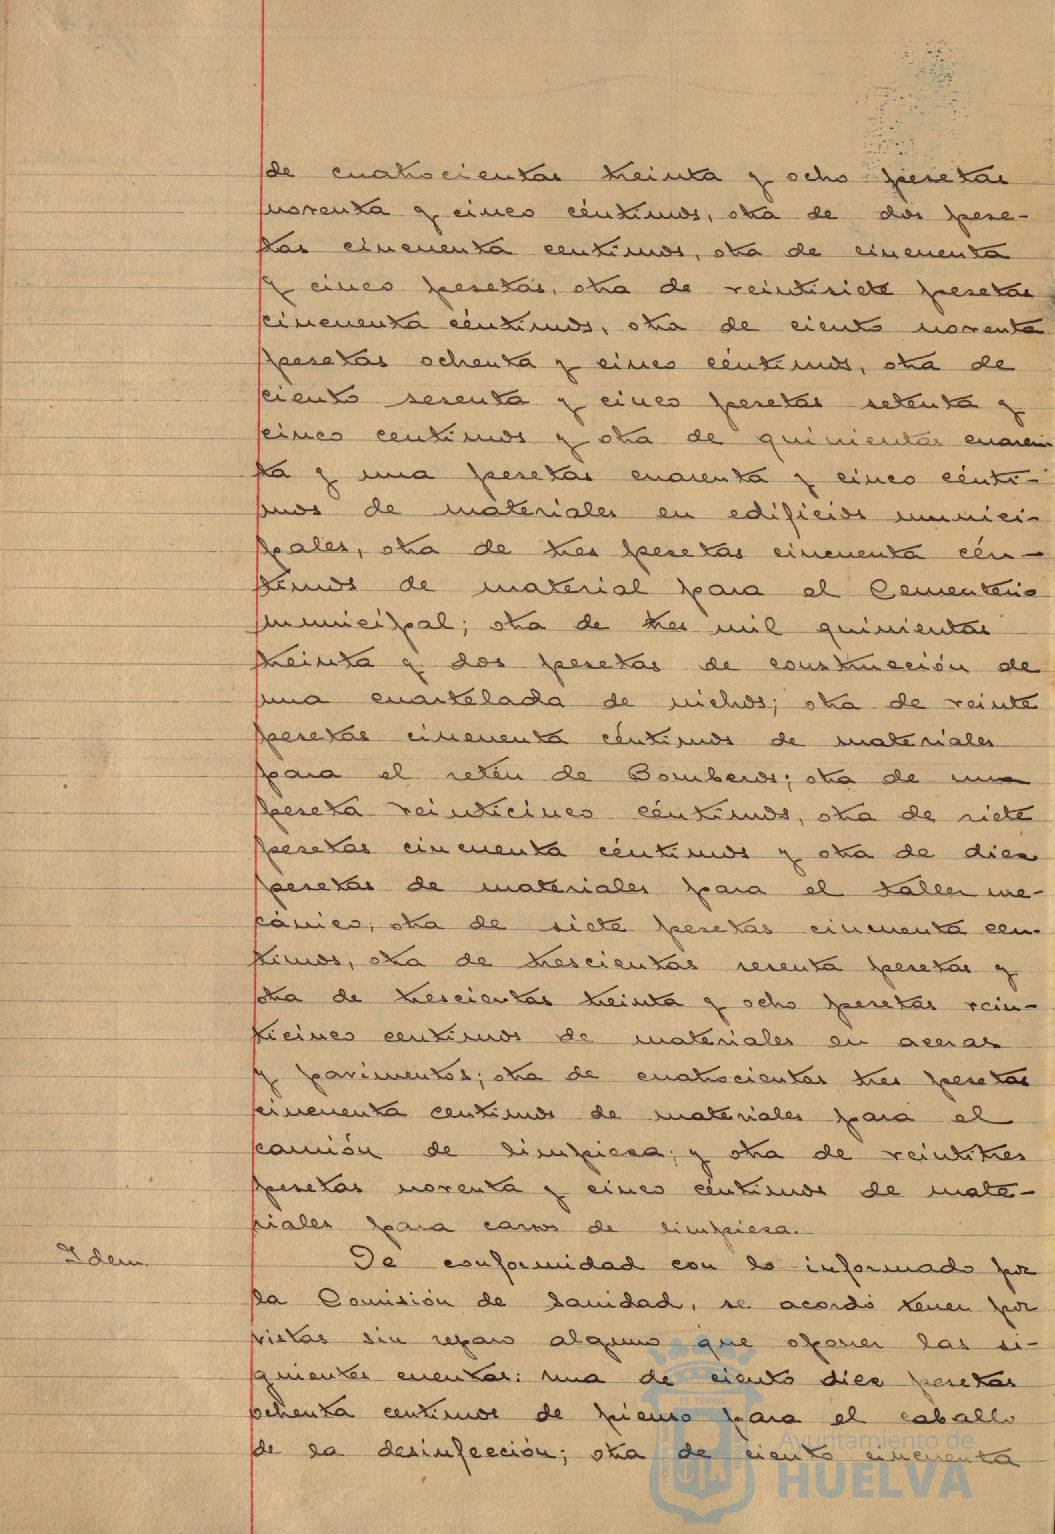 de cuatrocientas treinta y ocho pesetas
noventa y cinco céntimos, otra de dos pese-
tas cincuenta centimos, otra de cincuenta
y cinco pesetas, otra de veintisiete pesetas
cincuenta céntimos, otra de ciento noventa
pesetas ochenta y cinco céntimos, otra de
ciento sesenta y cinco pesetas setenta y
cinco centimos y otra de quinientas cuaren
ta y una pesetas cuarenta y cinco cénti-
mos de materiales en edificios munici-
pales, otra de tres pesetas cincuenta cén-
timos de material para el Cementerio
municipal; otra de tres mil quinientas
treinta y dos pesetas de construcción de
una cuartelada de nichos; otra de veinte
pesetas cincuenta céntimos de materiales
para el retén de Bomberos; otra de una
peseta veinticinco céntimos, otra de siete
pesetas cincuenta céntimos y otra de diez
pesetas de materiales para el taller me-
cánico; otra de siete pesetas cincuenta cen-
timos, otra de trescientas sesenta pesetas y
otra de trescientas treinta y ocho pesetas vein-
ticinco centimos de materiales en aceras
y pavimentos; otra de cuatrocientas tres pesetas
cincuenta centimos de materiales para el
camión de limpieza; y otra de veintitres
pesetas noventa y cinco céntimos de mate-
riales para carros de limpieza.
Idem. De conformidad con lo informado por
la Comisión de Sanidad, se acordó tener por
vistas sin reparo alguno que oponer las si-
guientes cuentas: una de ciento diez pesetas
ochenta centimos de pienso para el caballo
de la desinfección; otra de ciento cincuenta
Ayuntamiento de
HUELVA